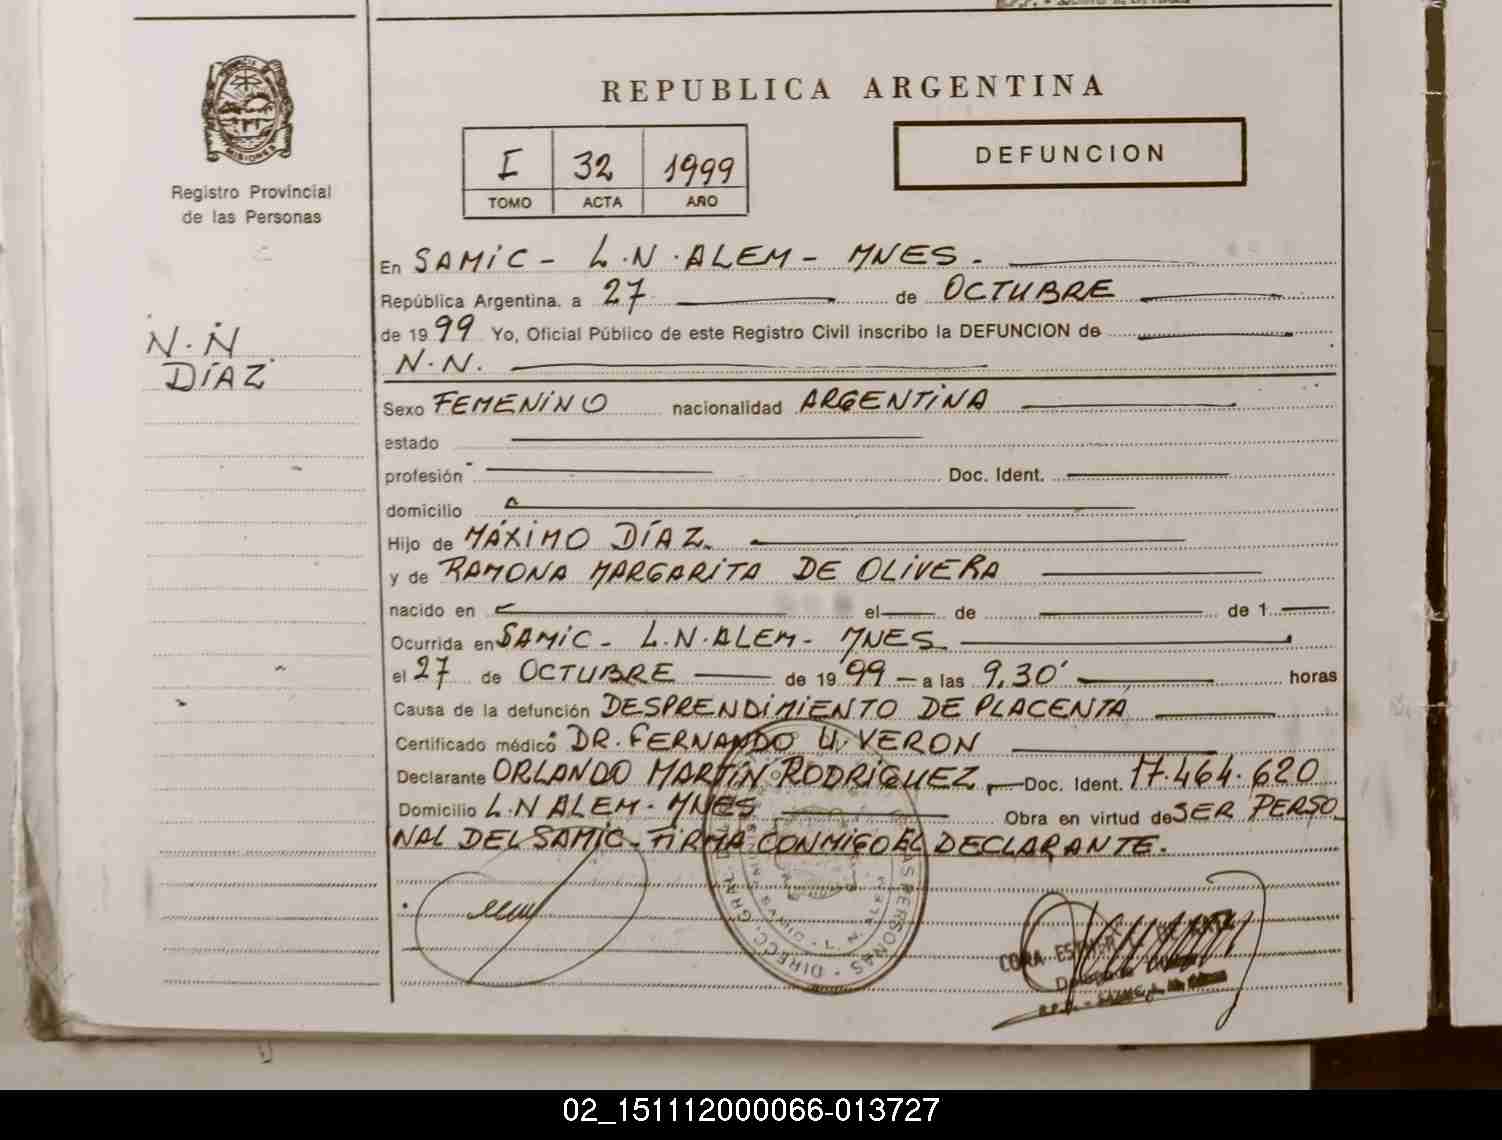 REPUBLICA ARGENTINA
MISIONES
Registro Provincial
de las Personas
I 32 1999
TOMO ACTA AÑO
DEFUNCION
N.N
DÍAZ
En SAMIC - L.N.ALEM - MNES.
República Argentina. a 27 de OCTUBRE
de 1999 Yo, Oficial Público de este Registro Civil inscribo la DEFUNCION de
N.N.
Sexo FEMENINO nacionalidad ARGENTINA
estado
profesión Doc. Ident.
domicilio
Hijo de MÁXIMO DÍAZ
y de RAMONA MARGARITA DE OLIVERA
nacido en el de de 1
Ocurrida en SAMIC - L.N.ALEM - MNES
el 27 de OCTUBRE de 1999 a las 9,30' horas
Causa de la defunción DESPRENDIMIENTO DE PLACENTA
Certificado médico DR. FERNANDO U. VERON
Declarante ORLANDO MARTÍN RODRIGUEZ, Doc. Ident. 17.464.620
Domicilio L.N ALEM - MNES Obra en virtud de SER PERSO
NAL DEL SAMIC - FIRMA CONMIGO EL DECLARANTE.
DIRECC. GRAL. PERSONAS
CORA ESTHER
02_151112000066-013727